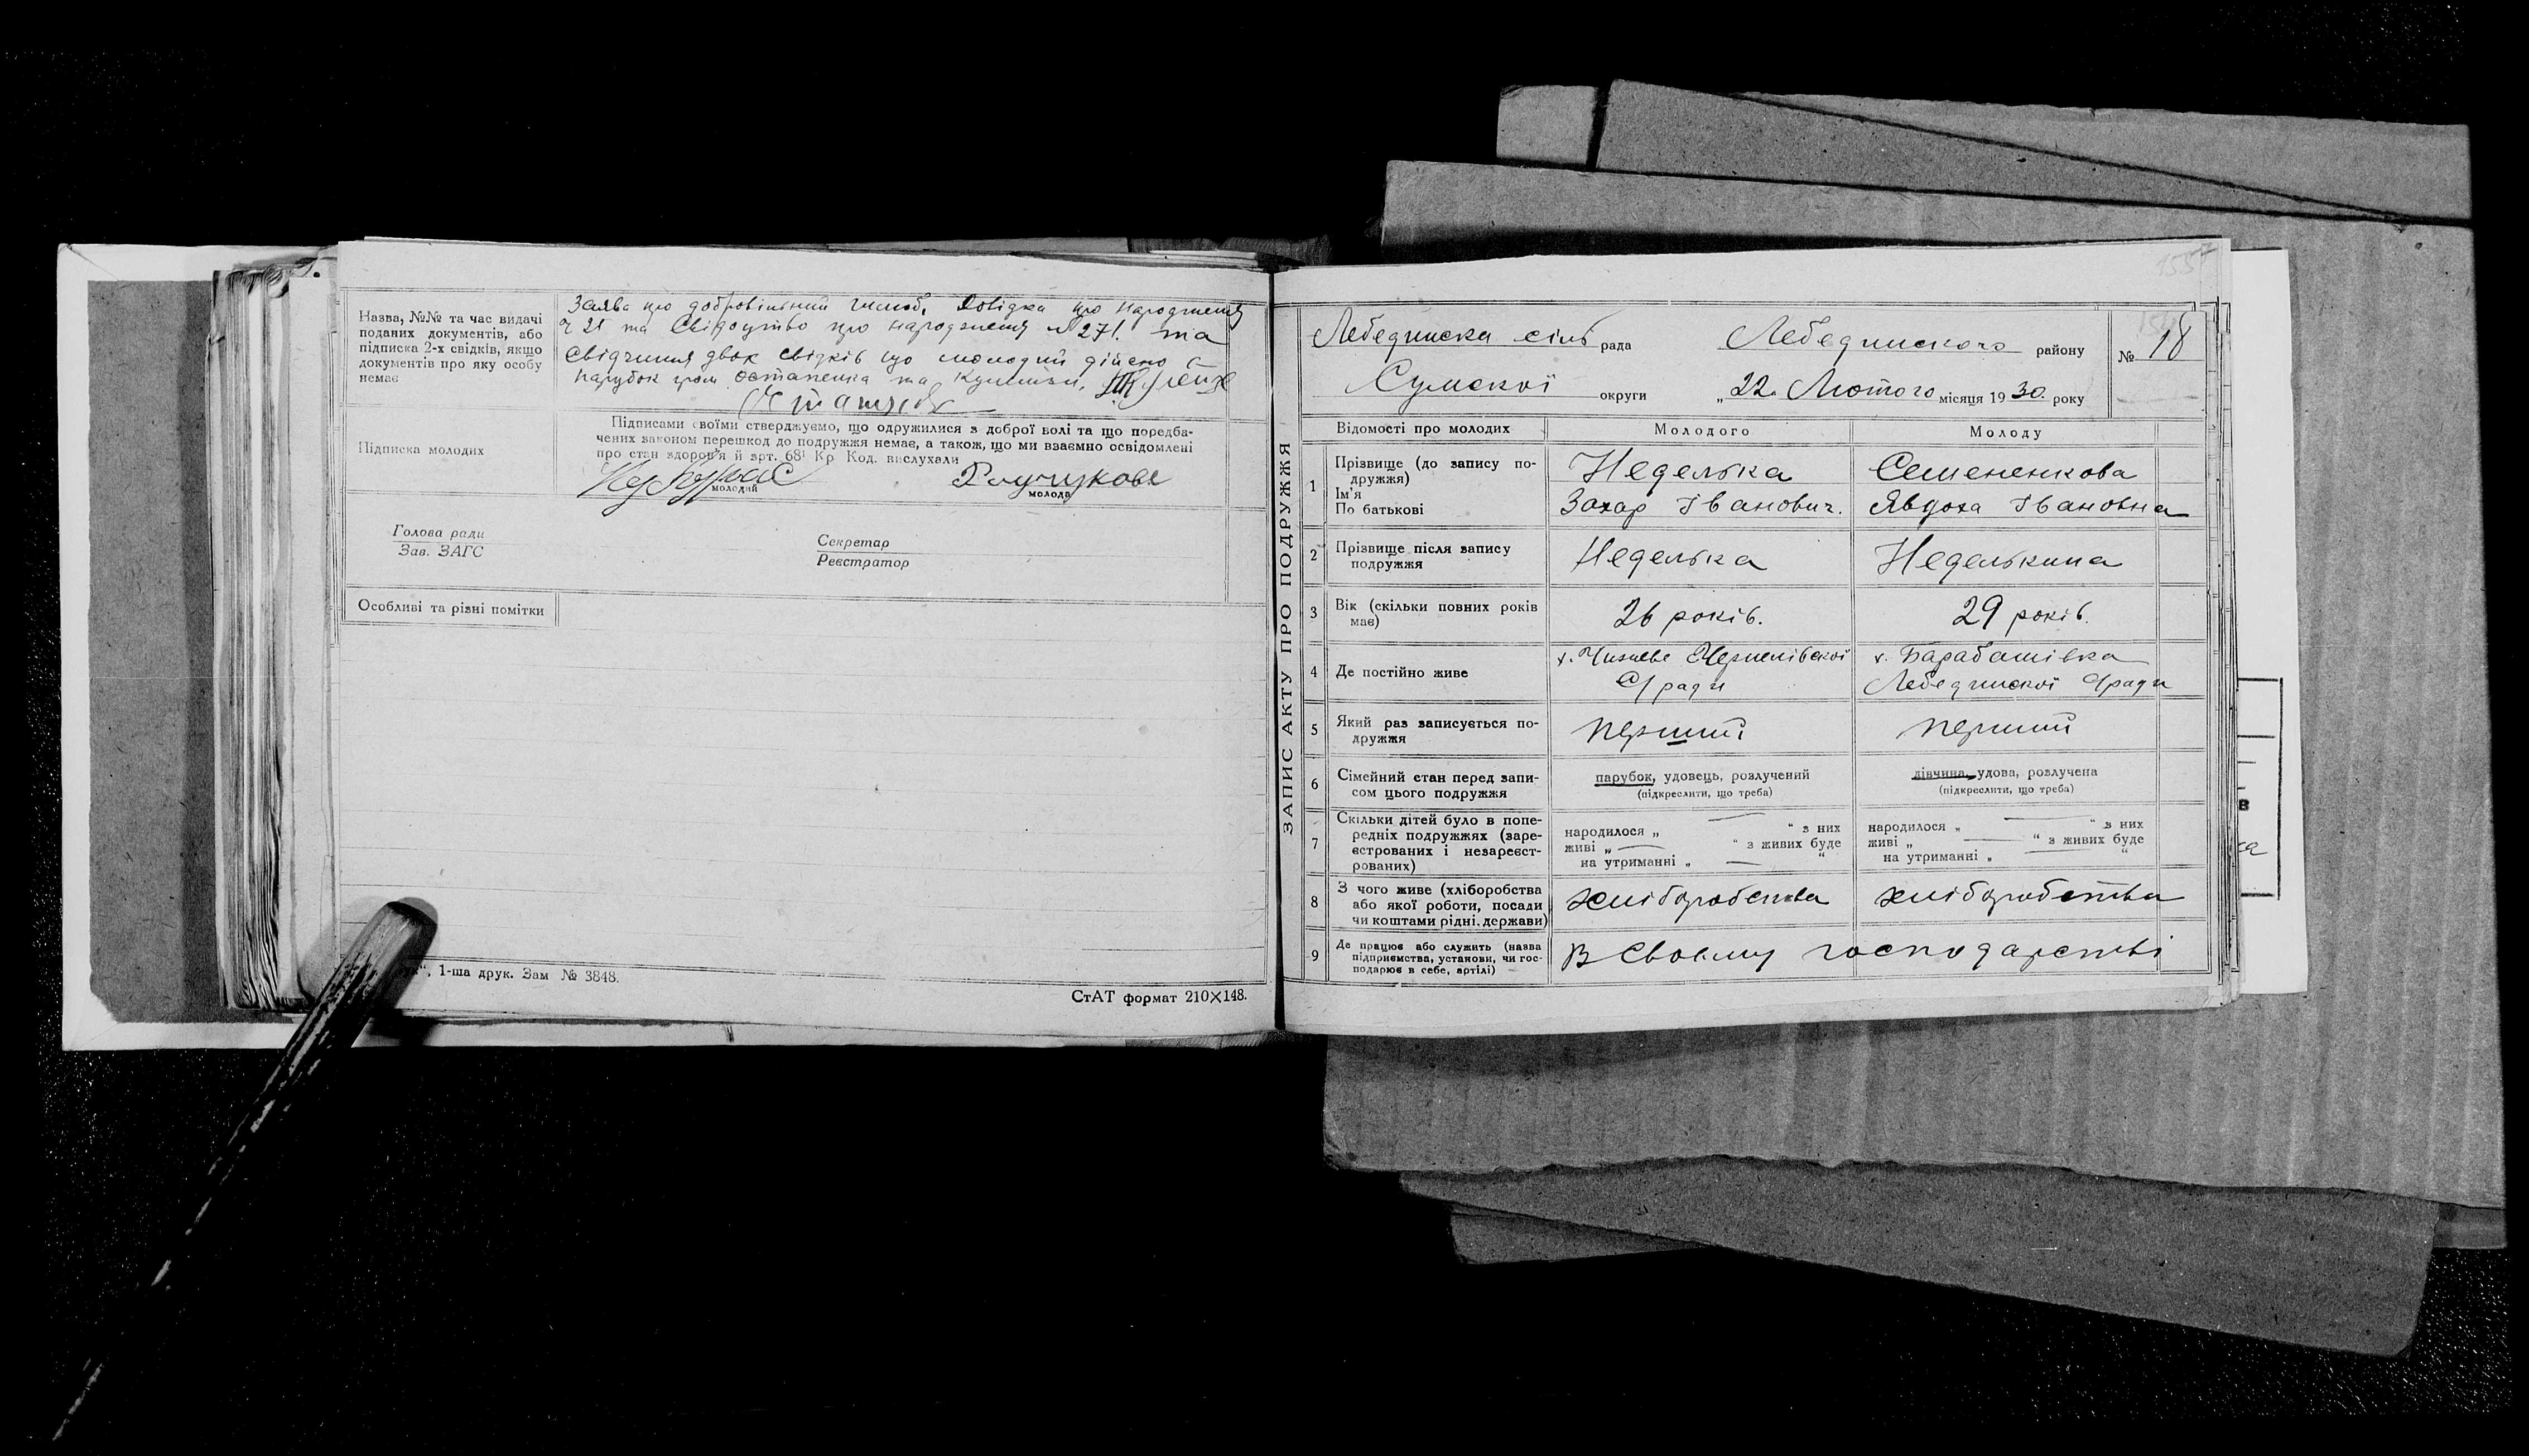 Назва, №№ та час видачі
поданих документів, або
підписка 2-х свідків, якщо
документів про яку особу
немає
Заява про добровільний шлюб, Довідка про народження
ч 21 та Свідоцтво про народження № 271. та
Свідчиння двох свідків що молодий дійсно є
парубок гром. Остапенка та
Підписка молодих
Підписами своїми стверджуємо, що одружилися з доброї волі та що передба-
чених законом перешкод до подружжя немає, а також, що ми взаємно освідомлені
про стан здоров'я й арт. 68¹ Кр Код. вислухали
молодий
молода
Голова ради
Зав. ЗАГС
Секретар
Реєстратор
Особливі та різні помітки
", 1-ша друк. Зам № 3848.
СтАТ формат 210×148.
ЗАПИС АКТУ ПРО ПОДРУЖЖЯ
Лебединска сіль рада Лебединского району № 18
Сумскої округи „22„ Лютого місяця 1930. року
Відомості про молодих Молодого Молоду
1 Прізвище (до запису по-
дружжя)
Ім'я
По батькові
Неделька
Захар Іванович.
Семененкова
Явдоха Івановна
2 Прізвище після запису
подружжя
Неделька
Неделькина
3 Вік (скільки повних років
має)
26 років.
29 років.
4 Де постійно живе
С/ради
х. Барабашівка
Лебединскої С/ради
5 Який раз записується по-
дружжя
перший
перший
6 Сімейний стан перед запи-
сом цього подружжя
парубок, удовець, розлучений
(підкреслити, що треба)
дівчина, удова, розлучена
(підкреслити, що треба)
7 Скільки дітей було в попе-
редніх подружжях (заре-
єстрованих і незареєст-
рованих)
народилося „ — “ з них
живі „ — “ з живих буде
на утриманні „ — “
народилося „ — “ з них
живі „ — “ з живих буде
на утриманні „ — “
8 З чого живе (хліборобства
або якої роботи, посади
чи коштами рідні, держави)
хліборобства
хліборобства
9 Де працює або служить (назва
підприємства, установи, чи гос-
подарює в себе, артілі)
В своєму господарстві